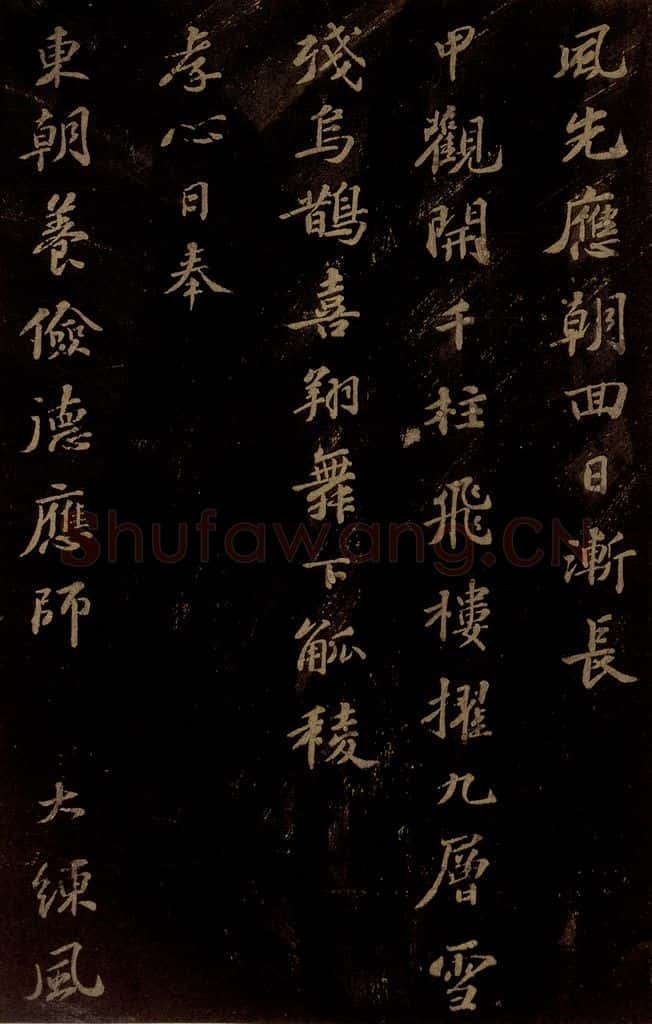 風先應朝回日漸長
甲觀開千柱飛樓擢九層雪
殘烏鵲喜翔舞下觚稜
孝心日奉
東朝養儉德應師 大練風
Shufawang.CN